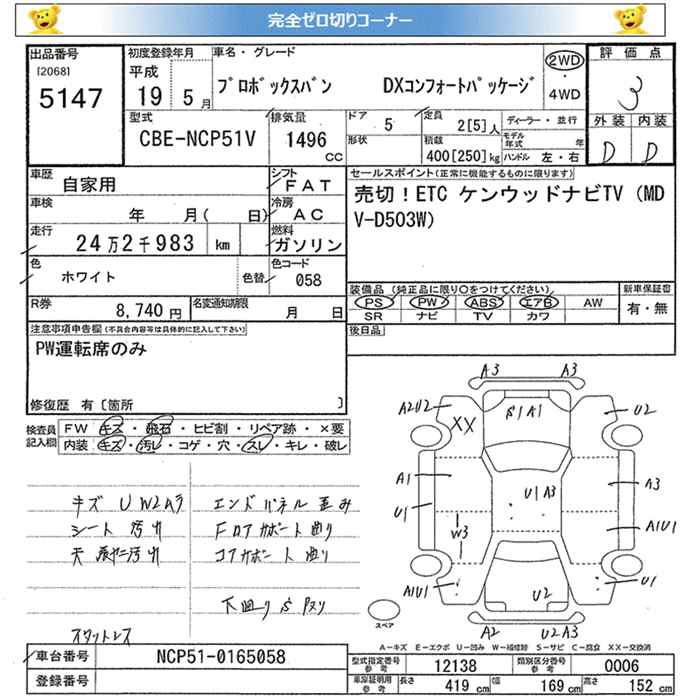 完全ゼロ切りコーナー
出品番号 初度登録年月 車名・グレード 評価点
[2068] 平成 2WD
5147 19 5月 プロボックスバン DXコンフォートパッケージ ・ 3
4WD
型式 排気量 ドア 5 定員 2[5]人 ディーラー・並行 外装 内装
CBE-NCP51V 1496 cc 形状 積載 400[250]kg モデル年式 年 D D
ハンドル 左・右
車歴 自家用 シフト FAT セールスポイント(正常に機能するものに限ります)
車検 年 月( 日) 冷房 AC 売切!ETC ケンウッドナビTV(MD
走行 24万2千983 km 燃料 ガソリン V-D503W)
色 ホワイト 色替 色コード 058
装備品(純正品に限り○をつけてください) 新車保証書
R券 8,740円 名変通知期限 月 日 PS PW ABS エアB AW 有・無
SR ナビ TV カワ
注意事項申告欄(不具合内容等は具体的に記入して下さい) 後日品
PW運転席のみ
修復歴 有〔箇所 〕
検査員記入欄 FW キズ・飛石・ヒビ割・リペア跡・×要
内装 キズ・汚レ・コゲ・穴・スレ・キレ・破レ
A3 A3
A2U2 XX A1 U2
A1 U1 U1 A3 A3
W3 A1U1
A1U1 U2 U1
A2 U2A3
キズ U W2A3 エンドパネル 歪み
シート 汚れ Fロアサポート 曲り
コアサポート 曲り
下廻り S
スタットレス
スペア
A-キズ E-エクボ U-凹み W-補修跡 S-サビ C-腐食 XX-交換済
車台番号 NCP51-0165058 型式指定番号 参考 12138 類別区分番号 参考 0006
登録番号 車庫証明用 参考 長さ 419cm 幅 169cm 高さ 152cm